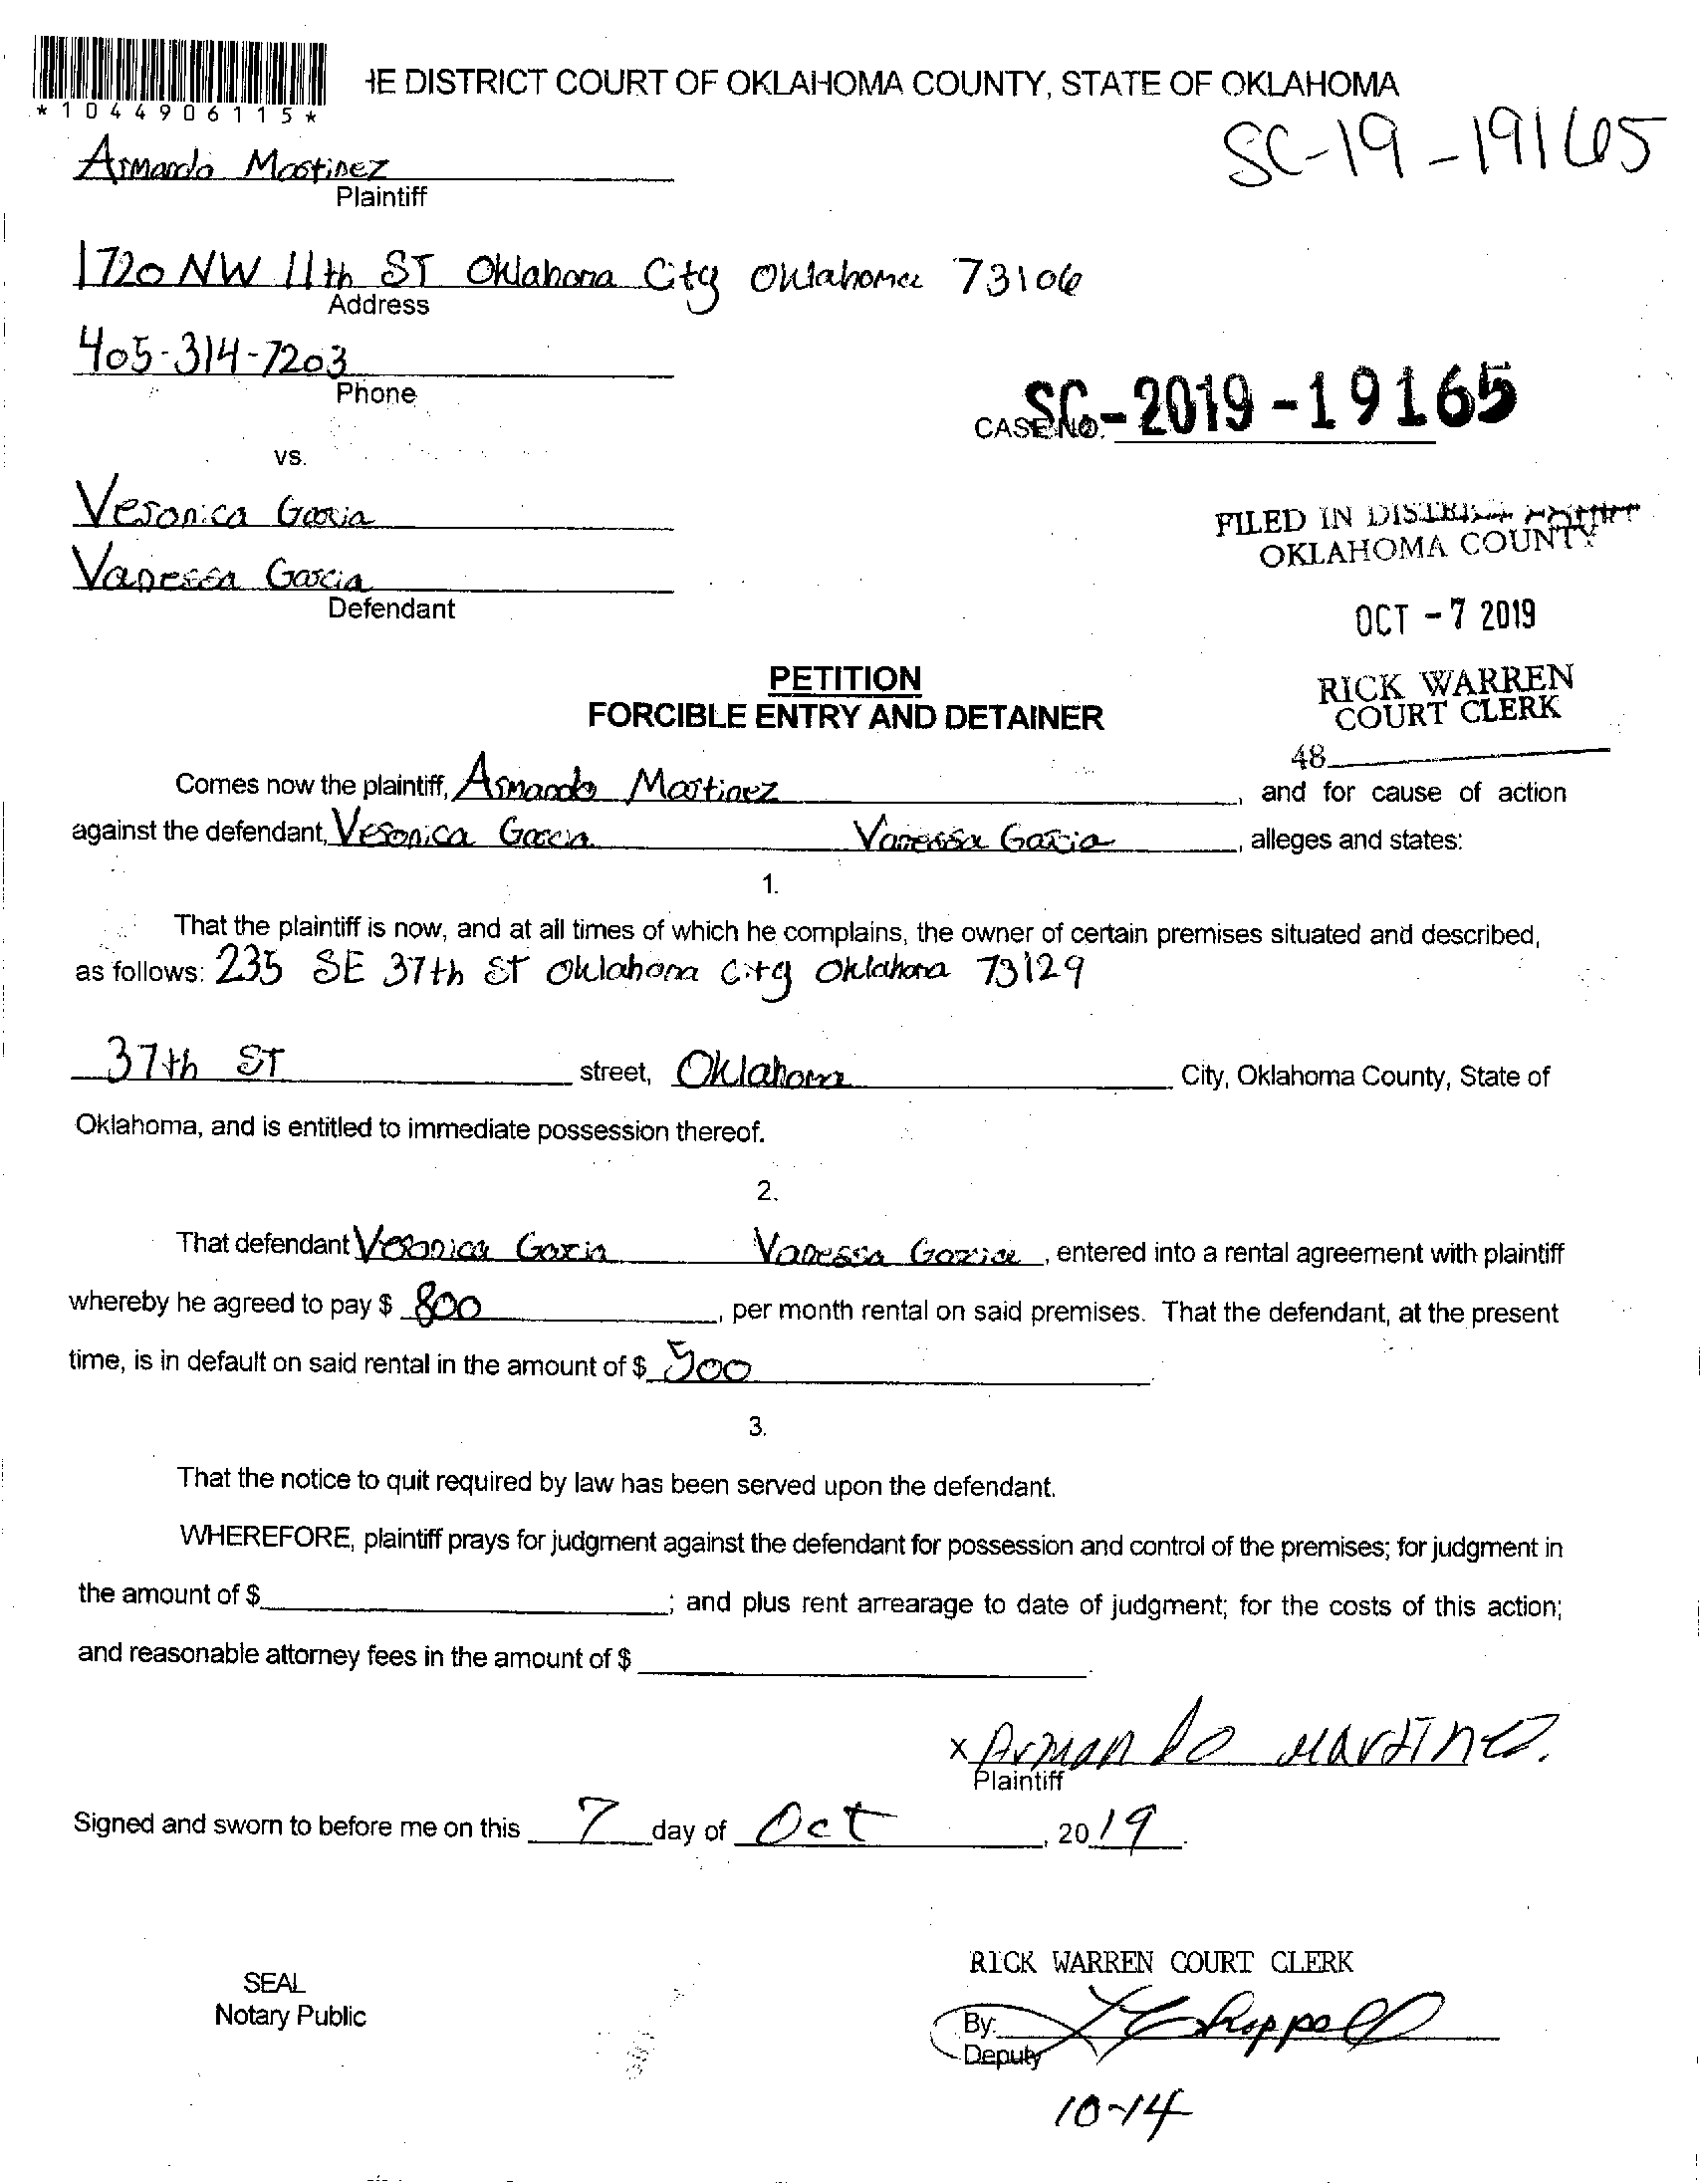 *1044906115*
HE DISTRICT COURT OF OKLAHOMA COUNTY, STATE OF OKLAHOMA
SC-19-19165
Armando Martinez
Plaintiff
1720 NW 11th ST Oklahoma City Oklahoma 73106
Address
405-314-7203
Phone
CASE No. SC-2019-19165
vs.
Veronica Garcia
FILED IN DISTRICT COURT
OKLAHOMA COUNTY
Vanessa Garcia
Defendant
OCT -7 2019
PETITION
FORCIBLE ENTRY AND DETAINER
RICK WARREN
COURT CLERK
48
Comes now the plaintiff, Armando Martinez, and for cause of action
against the defendant, Veronica Garcia Vanessa Garcia, alleges and states:
1.
That the plaintiff is now, and at all times of which he complains, the owner of certain premises situated and described,
as follows: 235 SE 37th ST Oklahoma City Oklahoma 73129
37th ST street, Oklahoma City, Oklahoma County, State of
Oklahoma, and is entitled to immediate possession thereof.
2.
That defendant Veronica Garcia Vanessa Garcia, entered into a rental agreement with plaintiff
whereby he agreed to pay $ 800, per month rental on said premises. That the defendant, at the present
time, is in default on said rental in the amount of $ 500.
3.
That the notice to quit required by law has been served upon the defendant.
WHEREFORE, plaintiff prays for judgment against the defendant for possession and control of the premises; for judgment in
the amount of $; and plus rent arrearage to date of judgment; for the costs of this action;
and reasonable attorney fees in the amount of $
x Armando Martinez.
Plaintiff
Signed and sworn to before me on this 7 day of Oct, 2019.
RICK WARREN COURT CLERK
SEAL
Notary Public
By:
Deputy
10-14